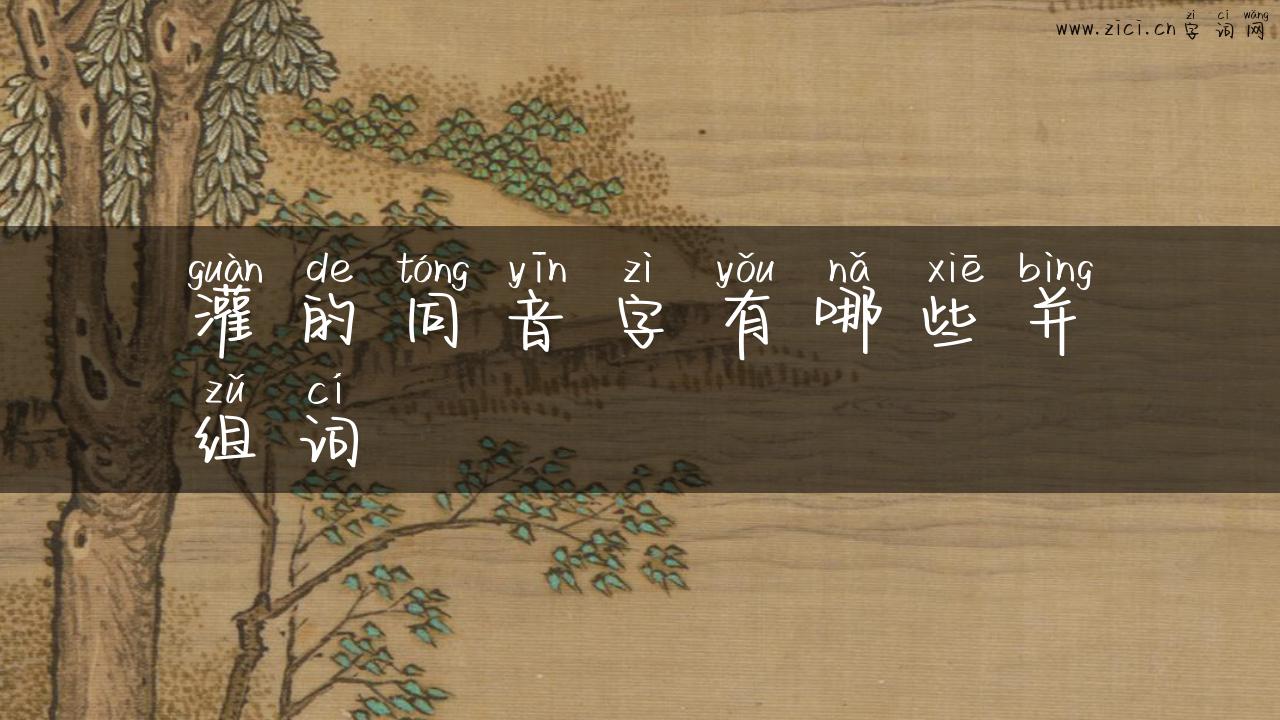 zì cí wǎng
www.zici.cn 字词网
guàn de tóng yīn zì yǒu nǎ xiē bìng
灌的同音字有哪些并
zǔ cí
组词